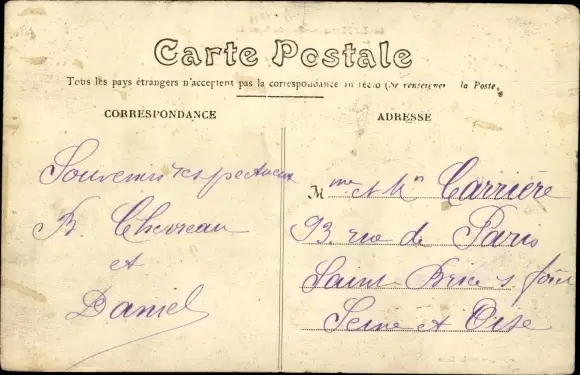 Carte Postale
Tous les pays étrangers n'acceptent pas la correspondance au recto (Se renseigner à la Poste)
CORRESPONDANCE
ADRESSE
Souvenirs respectueux
Chevreau
et
Daniel
Mme et Mr Carrière
93. rue de Paris
Saint Brice s. forêt
Seine et Oise